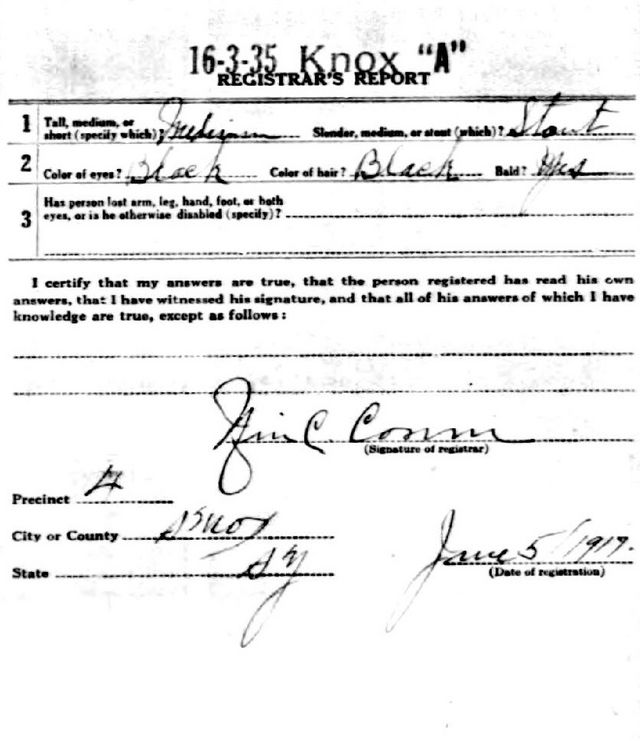 16-3-35 Knox "A"
REGISTRAR'S REPORT
1 Tall, medium, or short (specify which)? Medium Slender, medium, or stout (which)? Stout
2 Color of eyes? Black Color of hair? Black Bald?
3 Has person lost arm, leg, hand, foot, or both
eyes, or is he otherwise disabled (specify)?
I certify that my answers are true, that the person registered has read his own
answers, that I have witnessed his signature, and that all of his answers of which I have
knowledge are true, except as follows:
C.
(Signature of registrar)
Precinct 4
City or County Knox
State Ky
June 5/1917.
(Date of registration)